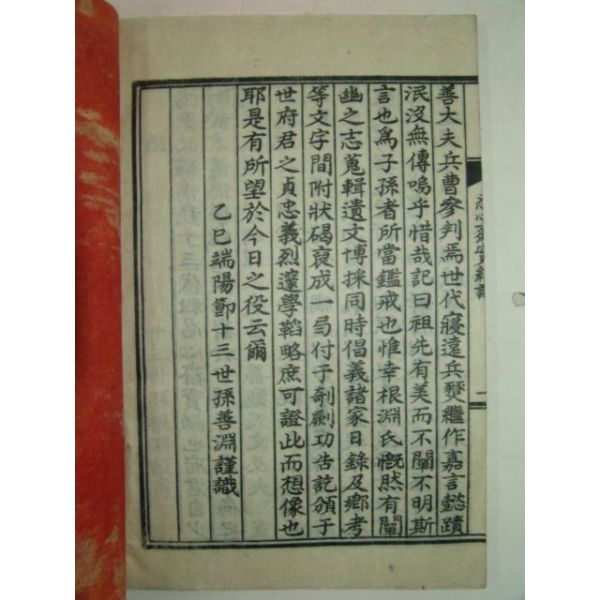 善大夫兵曹參判焉世代寢遠兵燹繼作嘉言懿蹟
泯沒無傳嗚乎惜哉記曰祖先有美而不闡不明斯
言也爲子孫者所當鑑戒也惟幸根淵氏慨然有闡
幽之志蒐輯遺文博採同時倡義諸家日錄及鄕考
等文字間附狀碣裒成一弓付于剞劂功告訖頒于
世府君之貞忠義烈邃學韜略庶可證此而想像也
耶是有所望於今日之役云爾
乙巳端陽節十三世孫善淵謹識
忍心齋實紀